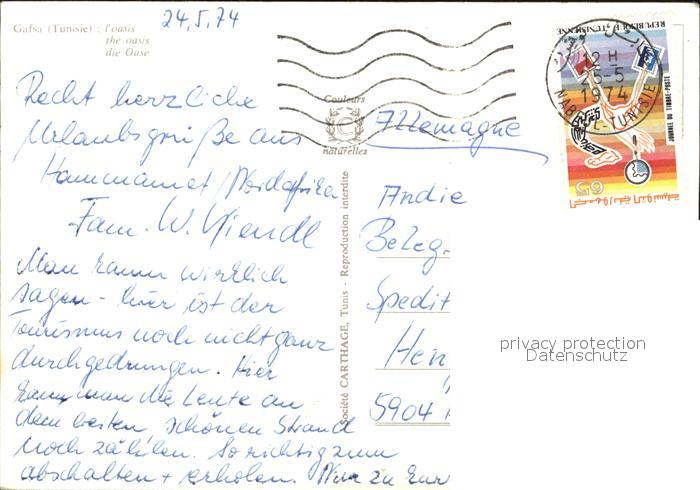 24.5.74
Gafsa (Tunisie) : l'oasis
the oasis
die Oase
Recht herzliche
Urlaubsgrüße aus
Hammamet/Nordafrika
Fam. W.
Man kann wirklich
sagen - hier ist der
Tourismus noch nicht ganz
durchgedrungen. Hier
kann man die Leute an
dem breiten, schönen Strand
noch zählen. So richtig zum
abschalten + erholen. Nur zu Eur
Couleurs
naturelles
Société CARTHAGE, Tunis - Reproduction interdite
Allemagne
An die
Beleg.
Spedit
Hen
5904
REPUBLIQUE TUNISIENNE
JOURNEE DU TIMBRE-POSTE
65
الجمهورية التونسية
12 H
5-5
1974
NABEUL-TUNISIE
privacy protection
Datenschutz